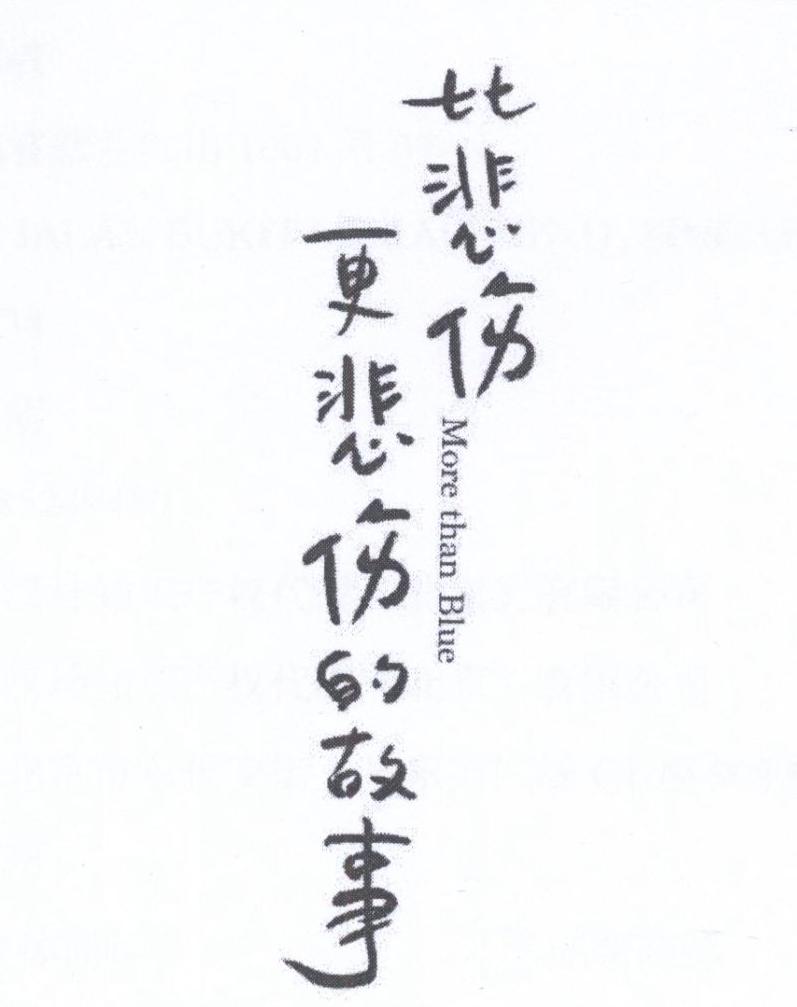 比悲伤
More than Blue
更悲伤的故事